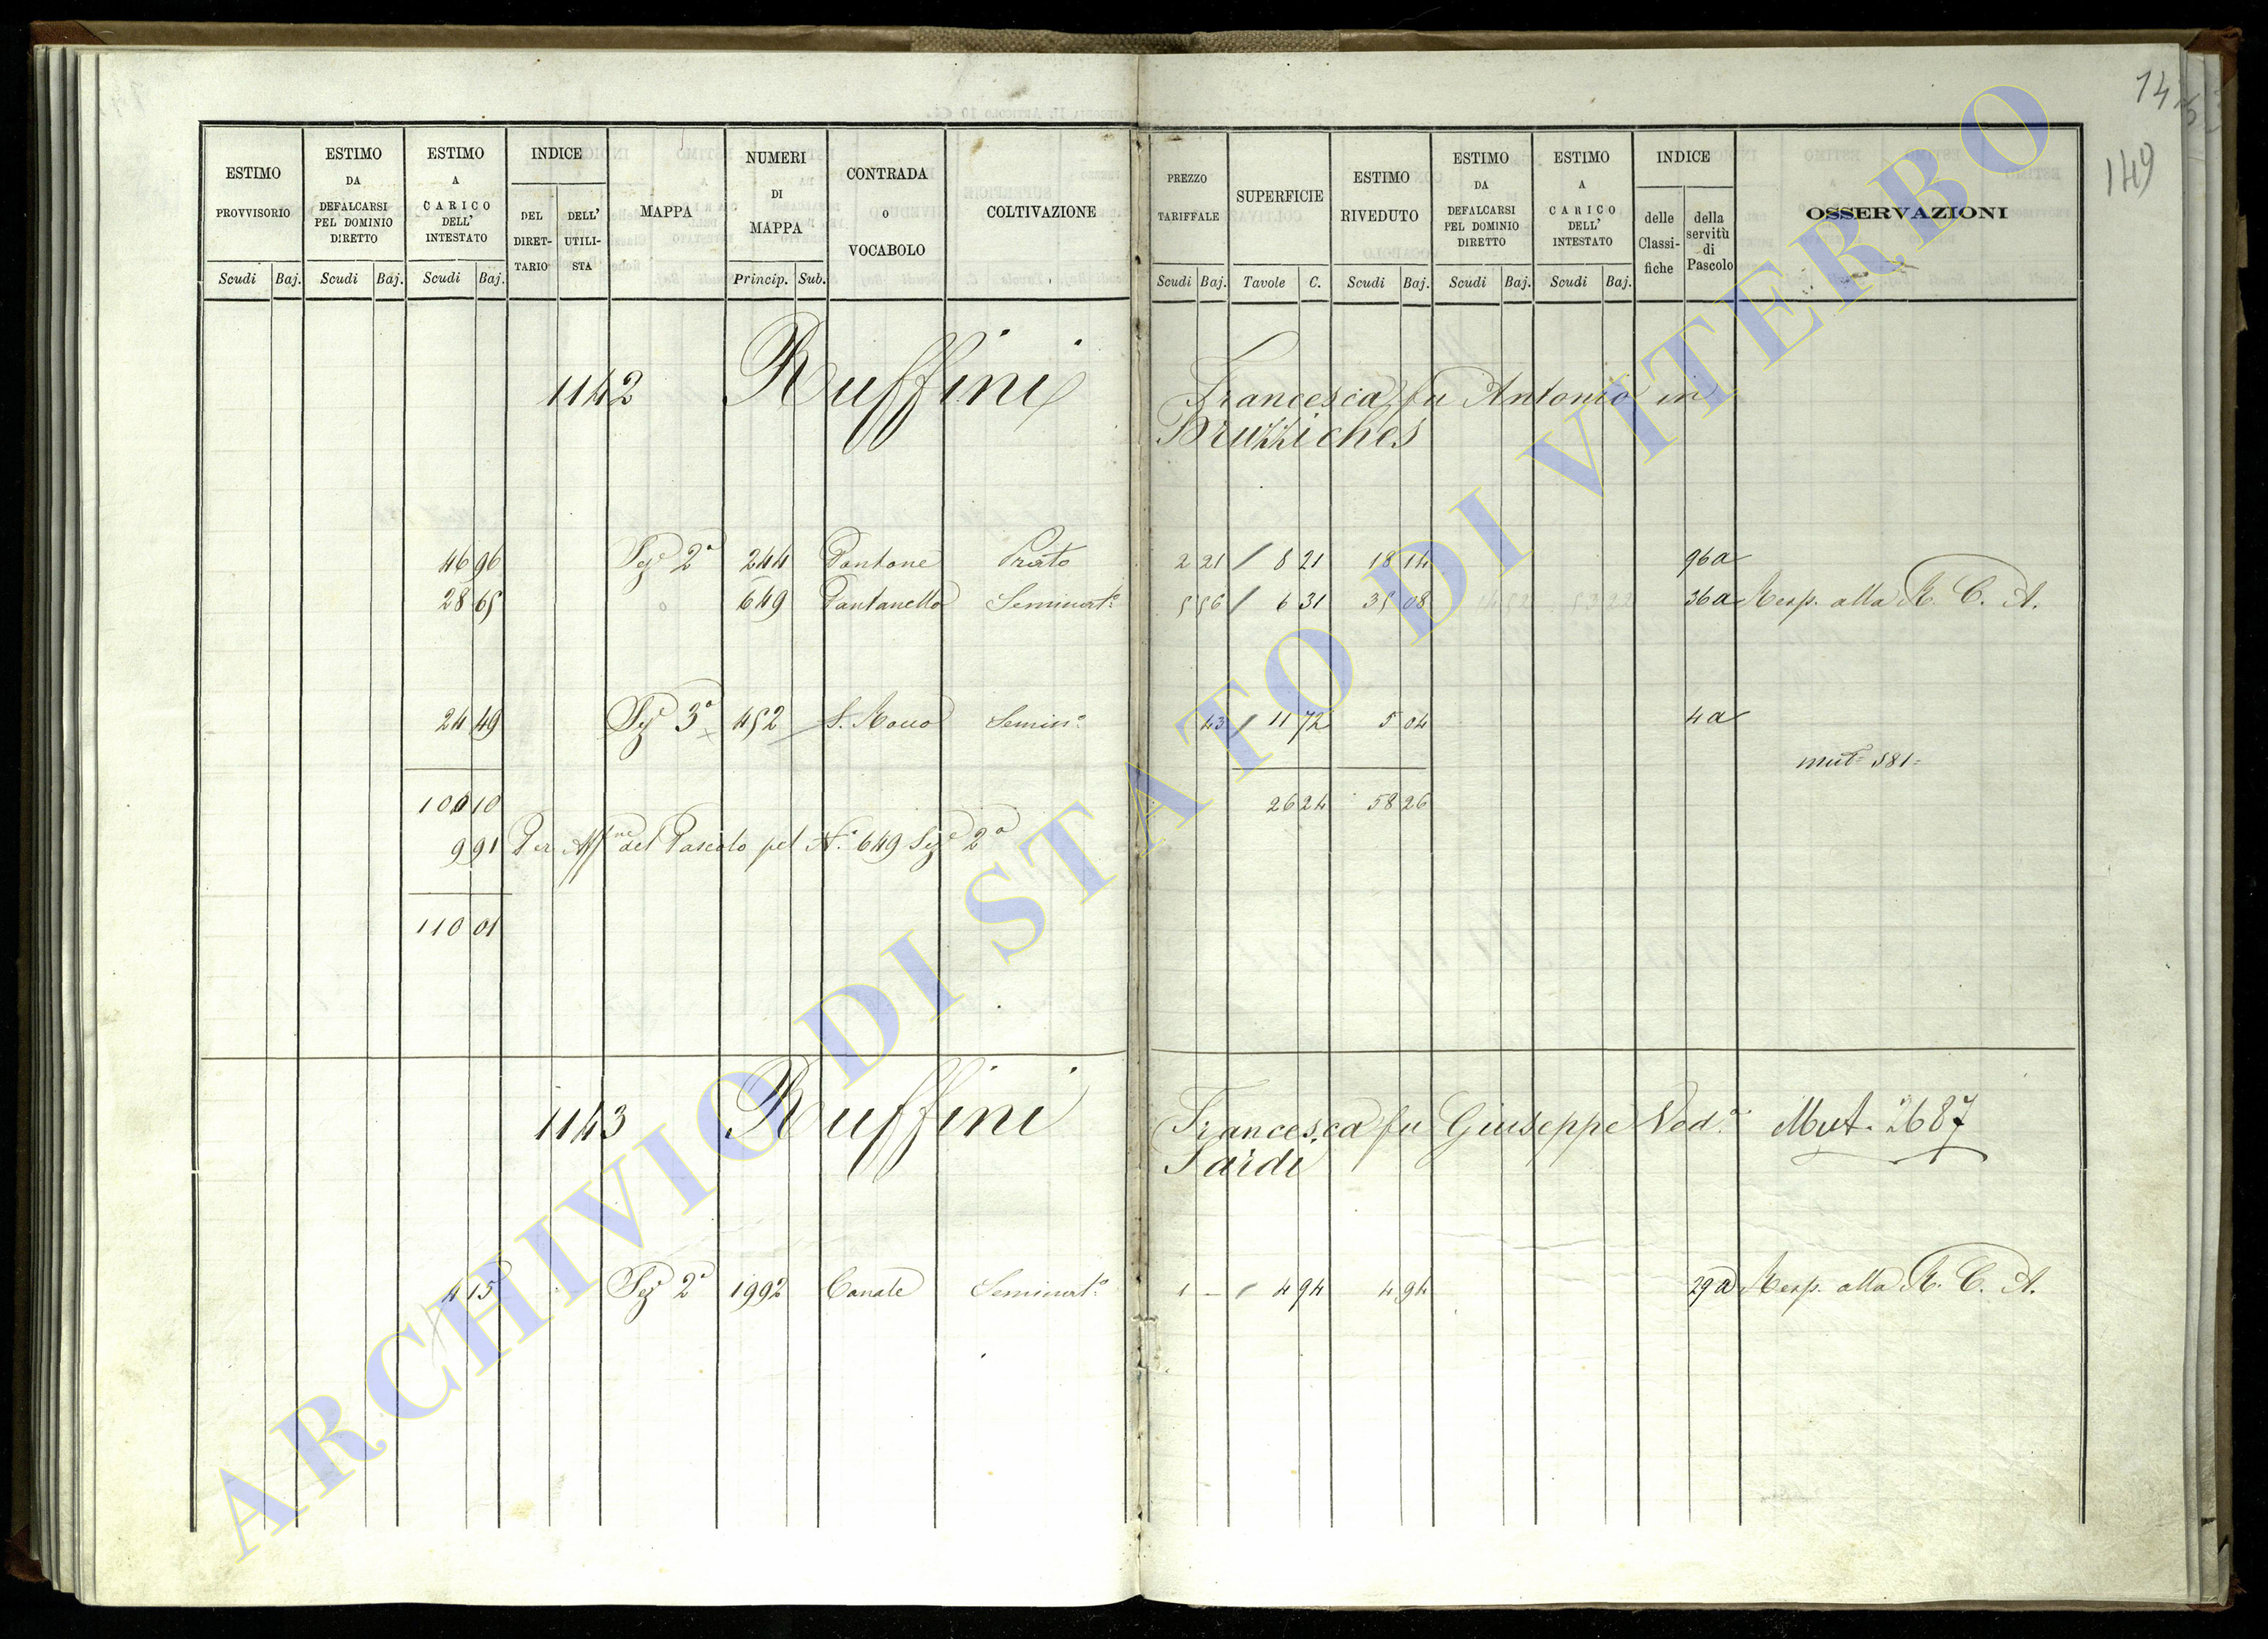 149
ESTIMO PROVVISORIO Scudi Baj.
ESTIMO DA DEFALCARSI PEL DOMINIO DIRETTO Scudi Baj.
ESTIMO A CARICO DELL' INTESTATO Scudi Baj.
INDICE DEL DIRET-TARIO DELL' UTILI-STA
MAPPA
NUMERI DI MAPPA Princip. Sub.
CONTRADA O VOCABOLO
COLTIVAZIONE
PREZZO TARIFFALE Scudi Baj.
SUPERFICIE Tavole C.
ESTIMO RIVEDUTO Scudi Baj.
ESTIMO DA DEFALCARSI PEL DOMINIO DIRETTO Scudi Baj.
ESTIMO A CARICO DELL' INTESTATO Scudi Baj.
INDICE delle Classi-fiche della servitù di Pascolo
OSSERVAZIONI
1142 Ruffini Francesca fu Antonio in
Bruzziches
46 96 Sez 2a 244 Pantone Prato 2 21 / 8 21 18 14 96a
28 65 " 649 Pantanella Seminat.o 5 56 / 6 31 35 08 36a Resp. alla R. C. A.
24 49 Sez 3a 452 S. Rocco Semin.o 43 / 11 72 5 04 4a
mut= 581=
100 10 26 24 58 26
9 91 Per Aff.ne del Pascolo pel N.o 649 Sez.e 2a
110 01
1143 Ruffini Francesca fu Giuseppe Ved.a Mut. 2687
Sardi
4 15 Sez 2a 1992 Canale Seminat.o 1 — / 4 94 4 94 29a Resp. alla R. C. A.
ARCHIVIO DI STATO DI VITERBO